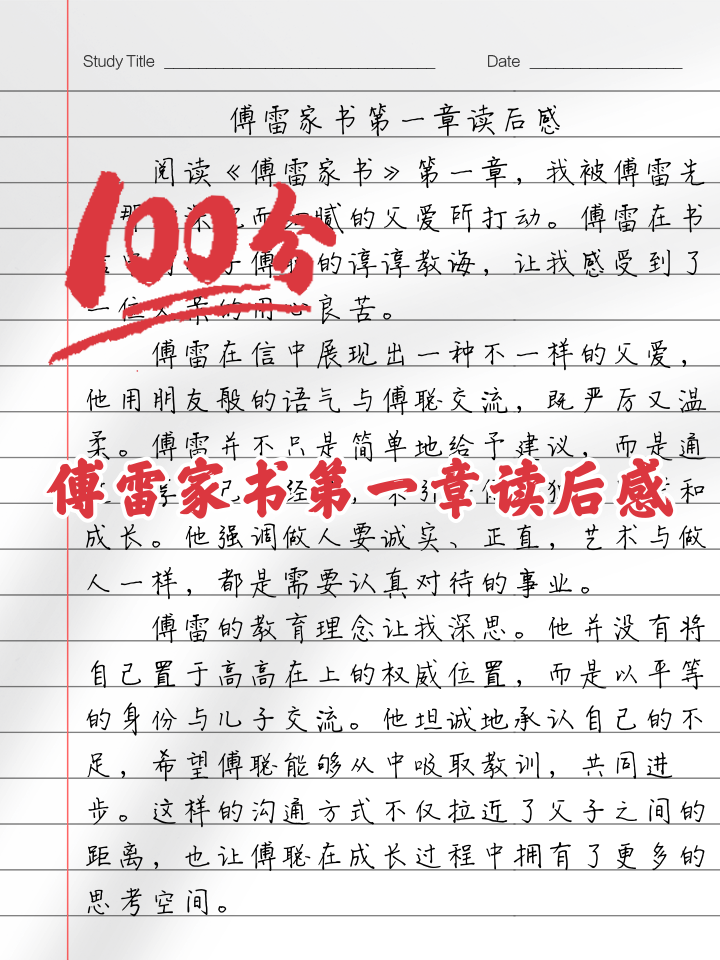 Study Title
Date
傅雷家书第一章读后感
阅读《傅雷家书》第一章，我被傅雷先
那 而 腻的父爱所打动。傅雷在书
傅 的谆谆教诲，让我感受到了
一位父亲的用心良苦。
100分
傅雷在信中展现出一种不一样的父爱，
他用朋友般的语气与傅聪交流，既严厉又温
柔。傅雷并不只是简单地给予建议，而是通
傅雷家书第一章读后感
经 和
成长。他强调做人要诚实、正直，艺术与做
人一样，都是需要认真对待的事业。
傅雷的教育理念让我深思。他并没有将
自己置于高高在上的权威位置，而是以平等
的身份与儿子交流。他坦诚地承认自己的不
足，希望傅聪能够从中吸取教训，共同进
步。这样的沟通方式不仅拉近了父子之间的
距离，也让傅聪在成长过程中拥有了更多的
思考空间。